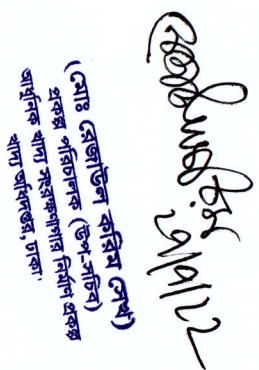 (মোঃ রেজাউল করিম শেখ)
প্রকল্প পরিচালক (উপ-সচিব)
আধুনিক খাদ্য সংরক্ষণাগার নির্মাণ প্রকল্প
খাদ্য অধিদপ্তর, ঢাকা।